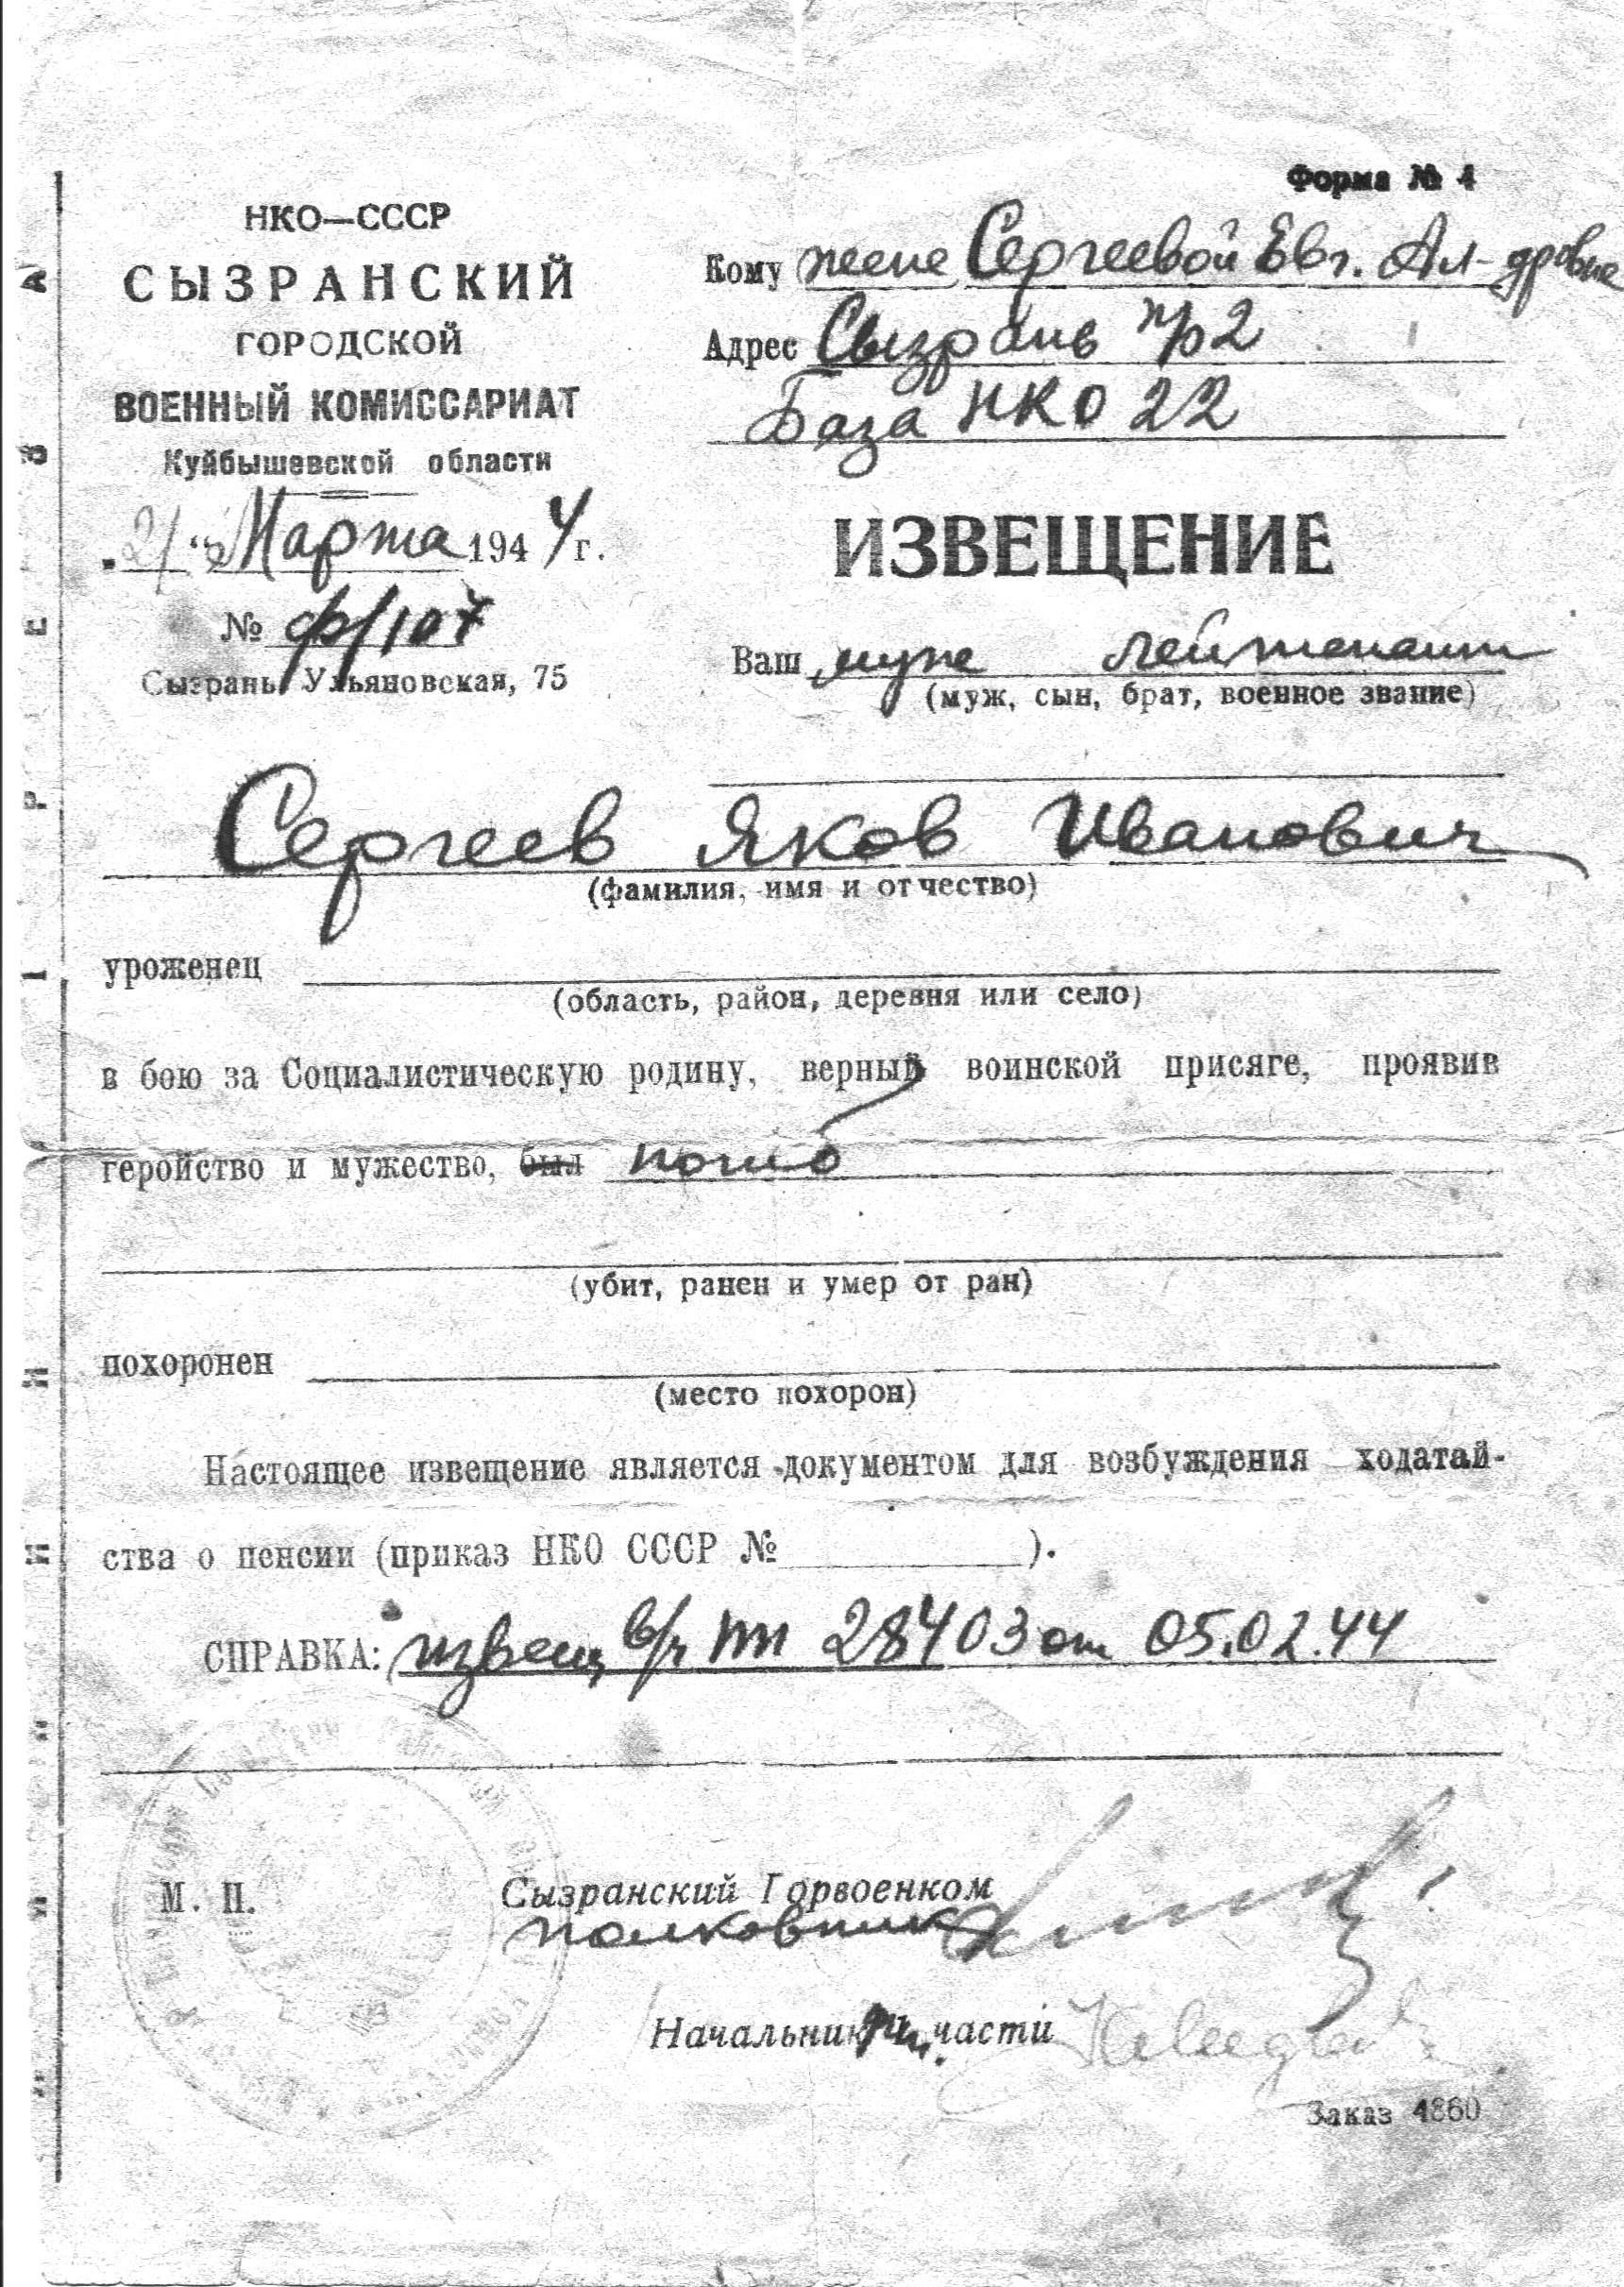 Форма № 4
НКО—СССР
СЫЗРАНСКИЙ
ГОРОДСКОЙ
ВОЕННЫЙ КОМИССАРИАТ
Куйбышевской области
„21“ Марта 1944 г.
№ ф/107
Сызрань, Ульяновская, 75
Кому жене Сергеевой Евг. Ал-дровне
Адрес Сызрань п/р 2
База НКО 22
ИЗВЕЩЕНИЕ
Ваш муж лейтенант
(муж, сын, брат, военное звание)
Сергеев Яков Иванович
(фамилия, имя и отчество)
уроженец
(область, район, деревня или село)
в бою за Социалистическую родину, верный воинской присяге, проявив
геройство и мужество, был погиб
(убит, ранен и умер от ран)
похоронен
(место похорон)
Настоящее извещение является документом для возбуждения ходатай-
ства о пенсии (приказ НКО СССР № ).
СПРАВКА: извещ в/ч пп 28403 от 05.02.44
М. П.
Сызранский Горвоенком
полковник
Начальник части
Заказ 4860